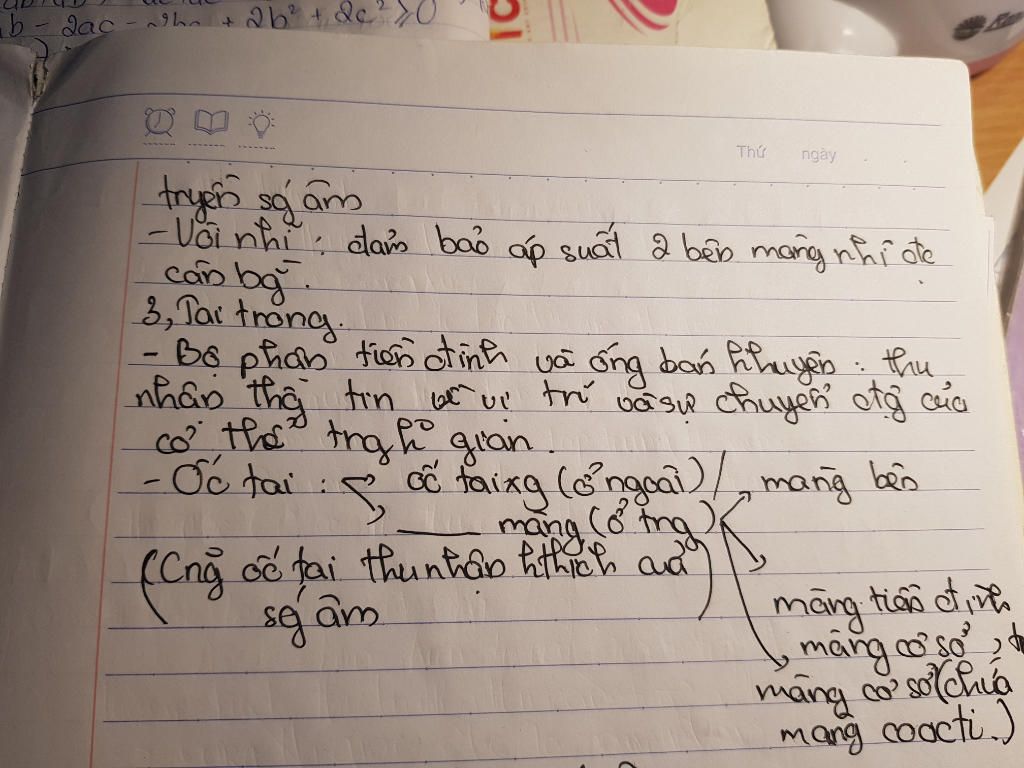 b - 2ac - 2bc + 2b² + 2c² ≥ 0
Thứ ngày
truyền sg âm
- Vòi nhĩ : đảm bảo áp suất 2 bên màng nhĩ đc
cân bg̀.
3, Tai trong.
- Bộ phận tiền đình và ống bán khuyên : thu
nhận thg̀ tin về vị trí và sự chuyển đg̣ của
cơ thể trg kg̀ gian.
- Ốc tai : ốc tai xg (ở ngoài) / màng bên
—— màng (ở trg)
(Cng̃ ốc tai thu nhận kthích của
sg âm)
màng tiền đình
màng cơ sở ,
màng cơ sở (chứa
màng coocti.)